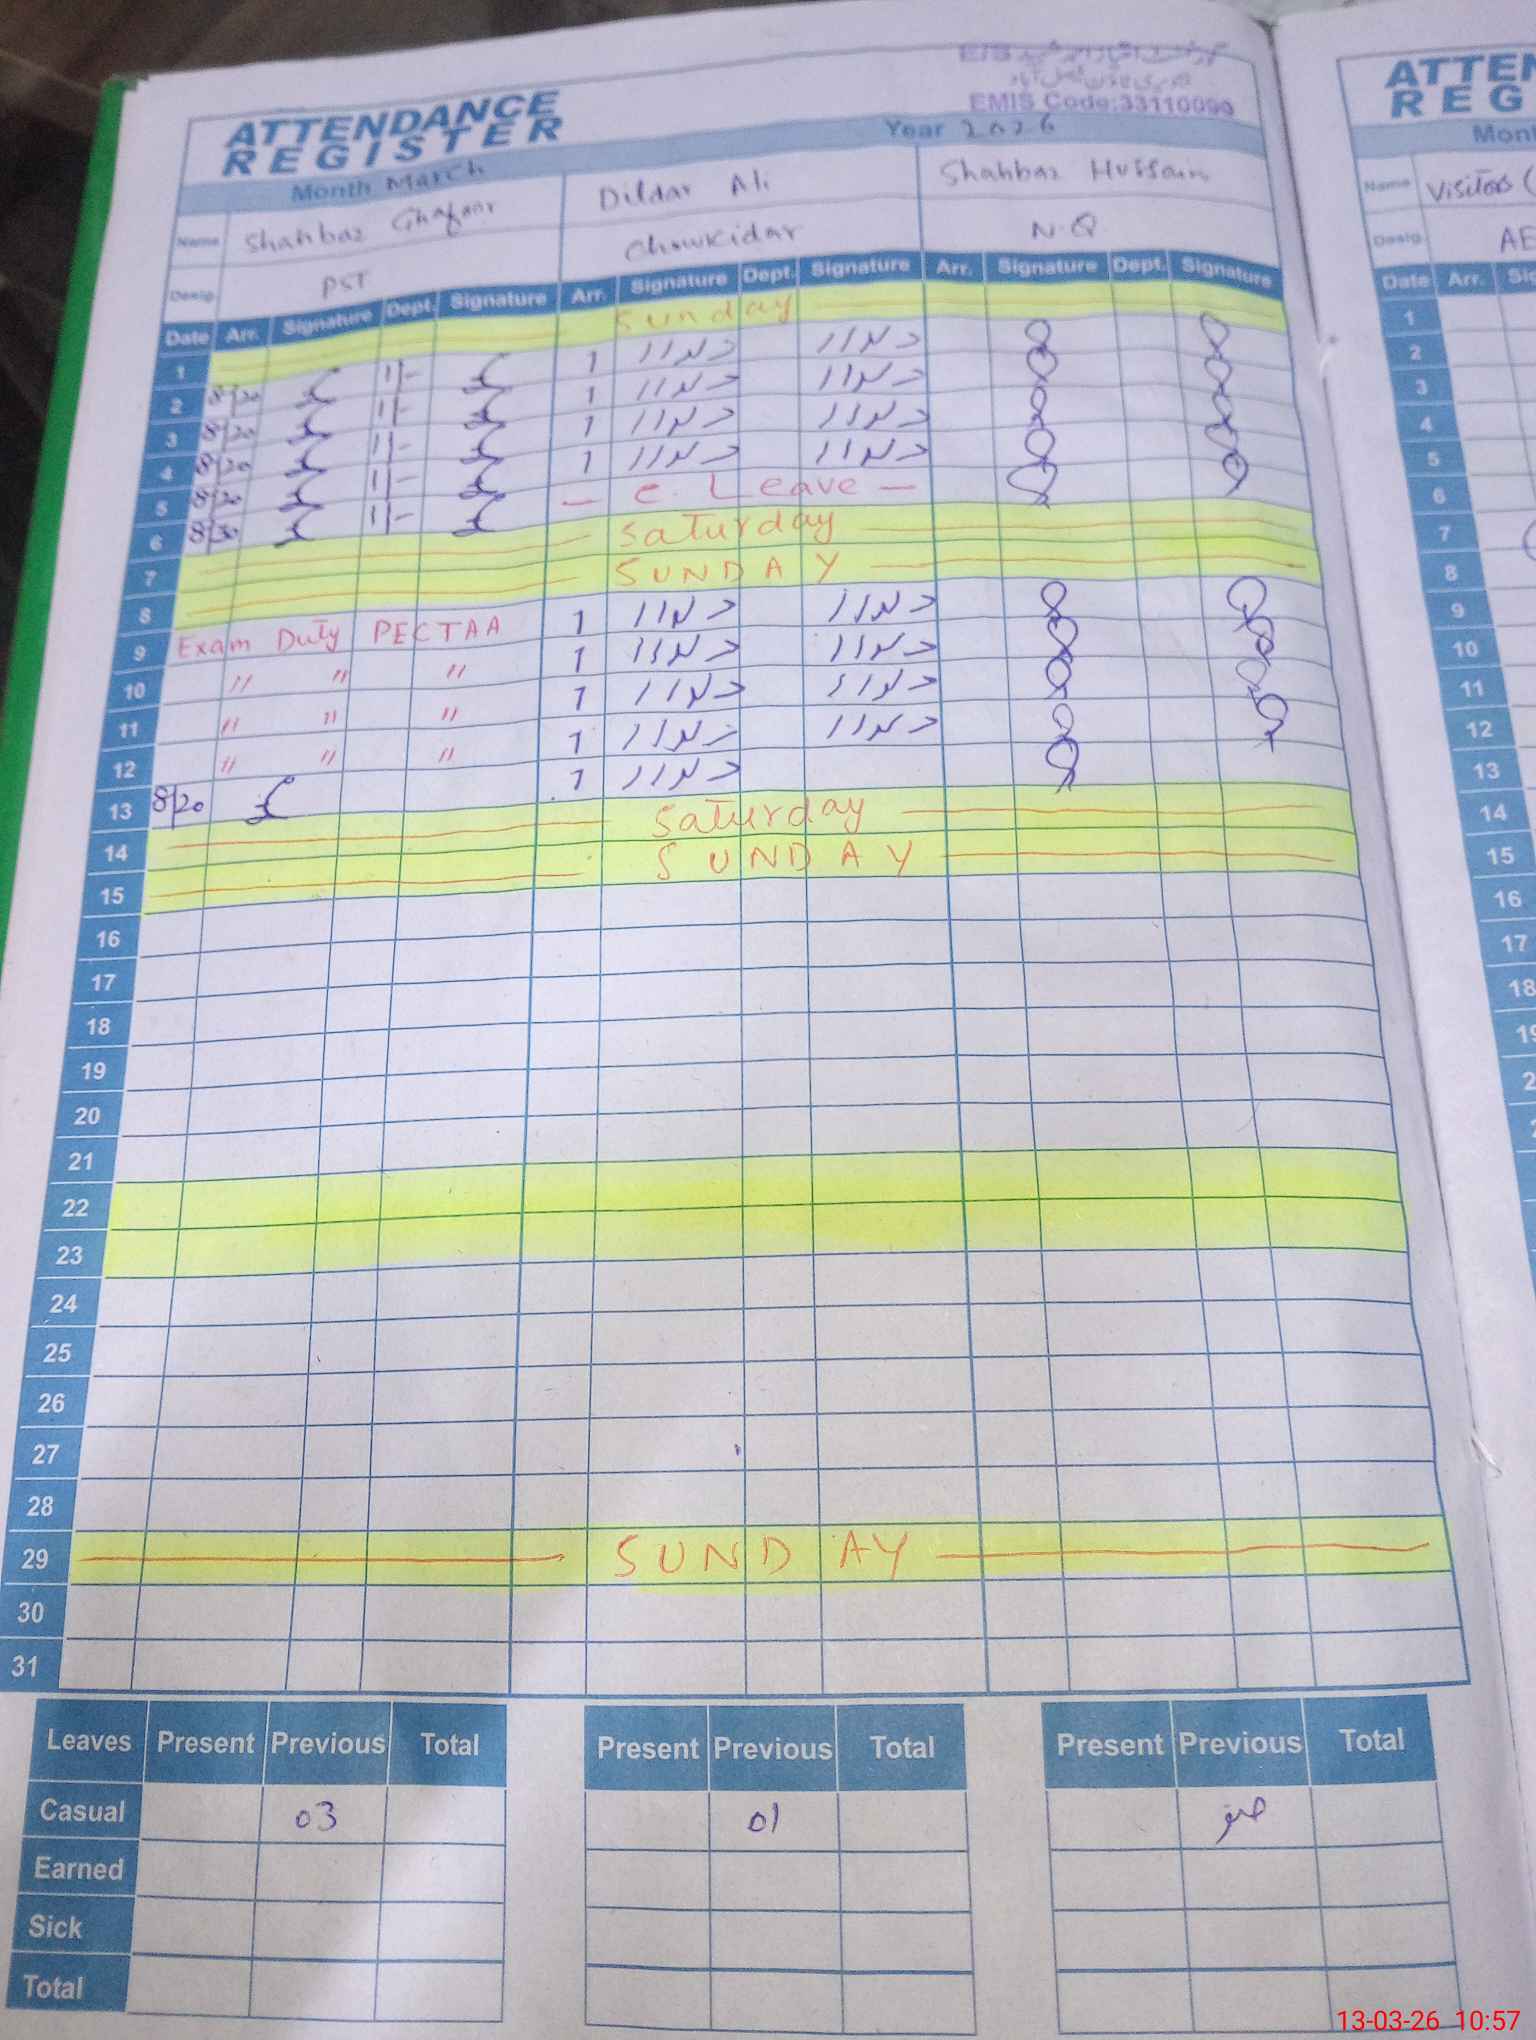 EMIS Code:33110090
ATTENDANCE
REGISTER
Month March Year 2026
Name Shahbaz Ghafoor Dildar Ali Shahbaz Hussain
Desig PST Chowkidar N.Q
Date Arr. Signature Dept. Signature Arr. Signature Dept. Signature Arr. Signature Dept. Signature
1 Sunday
2 8/20 11- 1
3 8/20 11- 1
4 8/20 11- 1
5 8/20 11- 1
6 8/30 11- — C. Leave —
7 Saturday
8 SUNDAY
9 Exam Duty PECTAA 1
10 " " " 1
11 " " " 1
12 " " " 1
13 8/20 1
14 Saturday
15 SUNDAY
16
17
18
19
20
21
22
23
24
25
26
27
28
29 SUNDAY
30
31
Leaves Present Previous Total Present Previous Total Present Previous Total
Casual 03 01 صفر
Earned
Sick
Total
ATTEN
REG
Mon
Name Visitors (
Desig AE
Date Arr. Si
1
2
3
4
5
6
7
8
9
10
11
12
13
14
15
16
17
18
13-03-26 10:57